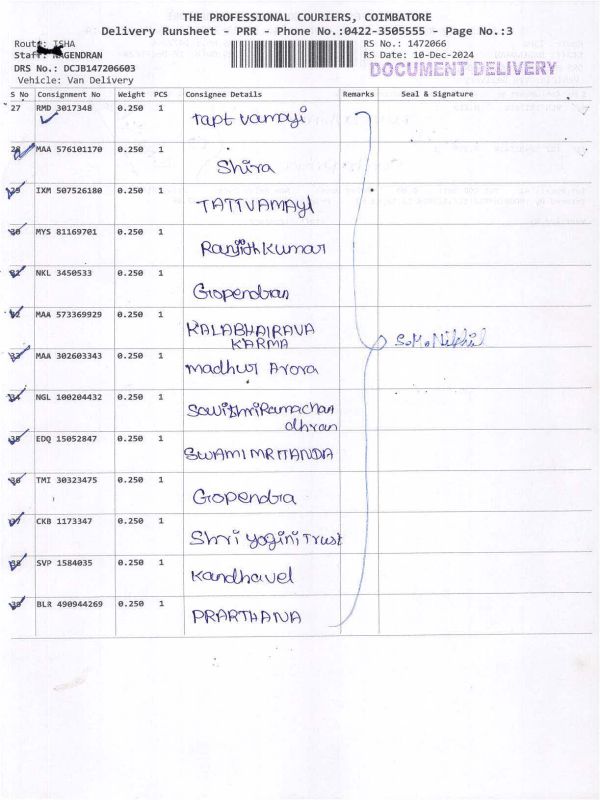 THE PROFESSIONAL COURIERS, COIMBATORE
Delivery Runsheet - PRR - Phone No.:0422-3505555 - Page No.:3
Route: ISHA
RS No.: 1472066
Staff: NAGENDRAN
RS Date: 10-Dec-2024
DRS No.: DCJB147206603
DOCUMENT DELIVERY
Vehicle: Van Delivery
S No Consignment No Weight PCS Consignee Details Remarks Seal & Signature
27 RMD 3017348 0.250 1 Tapt vamayi
28 MAA 576101170 0.250 1 Shira
29 IXM 507526180 0.250 1 TATTVAMAYI
30 MYS 81169701 0.250 1 Ranjith Kumar
31 NKL 3450533 0.250 1 Gopendran
32 MAA 573369929 0.250 1 KALABHAIRAVA
KARMA
S.M.Nikhil
33 MAA 302603343 0.250 1 madhur Arora
34 NGL 100204432 0.250 1 SawithriRamachan
dhran
35 EDQ 15052847 0.250 1 SWAMI
36 TMI 30323475 0.250 1 Gopendra
37 CKB 1173347 0.250 1 Shri Yogini Trust
38 SVP 1584035 0.250 1 Kandhavel
39 BLR 490944269 0.250 1 PRARTHANA